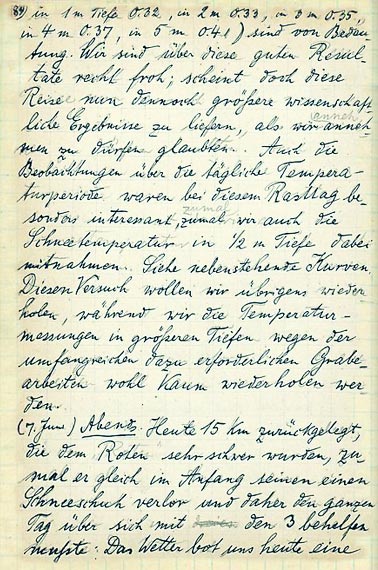 84) in 1 m Tiefe 0.32, in 2 m 0.33, in 3 m 0.35,
in 4 m 0.37, in 5 m 0.41) sind von Bedeu-
tung. Wir sind über diese guten Resul-
tate recht froh; scheint doch diese
Reise nun dennoch größere wissenschaft
liche Ergebnisse zu liefern, als wir anneh-
men zu dürfen glaubten. Auch die
Beobachtungen über die tägliche Tempera-
turperiode waren bei diesem Rasttag be-
sonders interessant, zumal wir auch die
Schneetemperatur in 1/2 m Tiefe dabei
mitnahmen. Siehe nebenstehende Kurven.
Diesen Versuch wollen wir übrigens wieder
holen, während wir die Temperatur-
messungen in größeren Tiefen wegen der
umfangreichen dazu erforderlichen Grabe-
arbeiten wohl kaum wiederholen wer
den.
(7. Juni) Abends. Heute 15 km zurückgelegt,
die dem Roten sehr schwer wurden, zu
mal er gleich im Anfang seinen einen
Schneeschuh verlor und daher den ganzen
Tag über sich mit den 3 behelfen
musste. Das Wetter bot uns heute eine